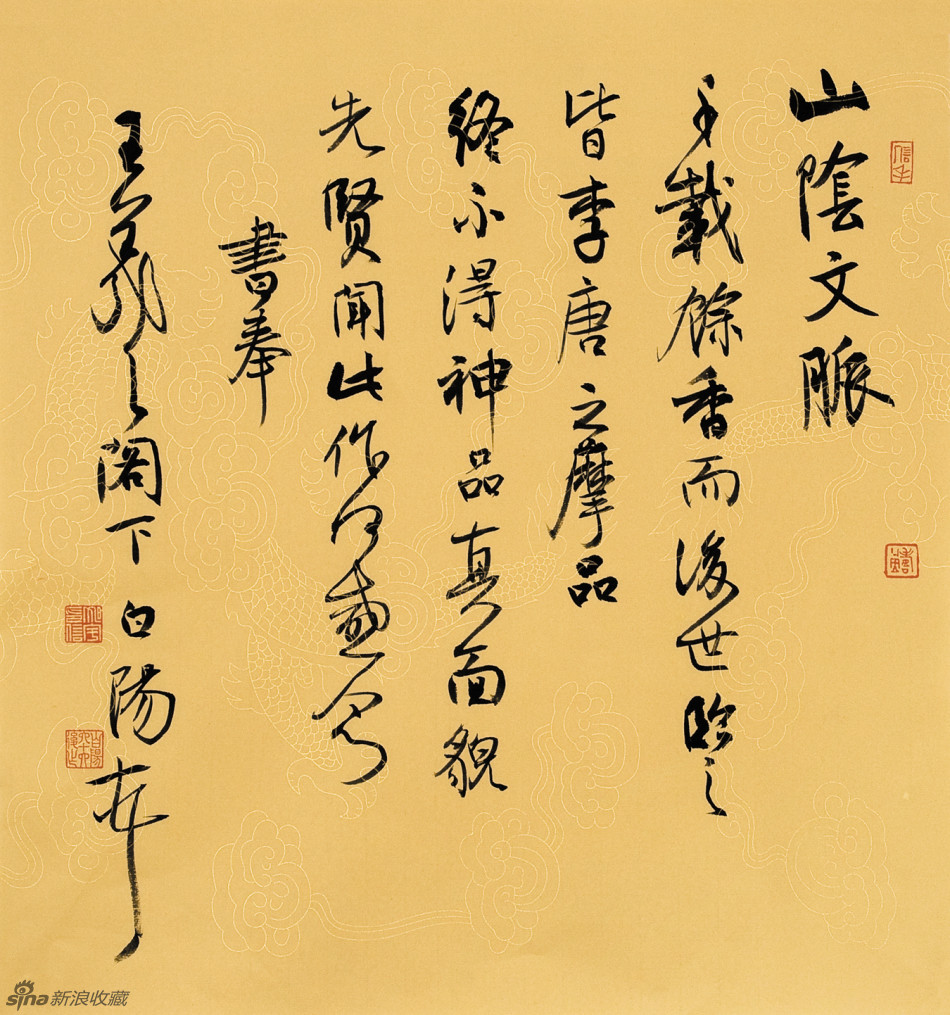 山陰文脈
千載餘香而後世臨之
皆李唐之摩品
終不得神品真面貌
先賢聞此作何
書奉
王羲之閣下 白陽
sina新浪收藏